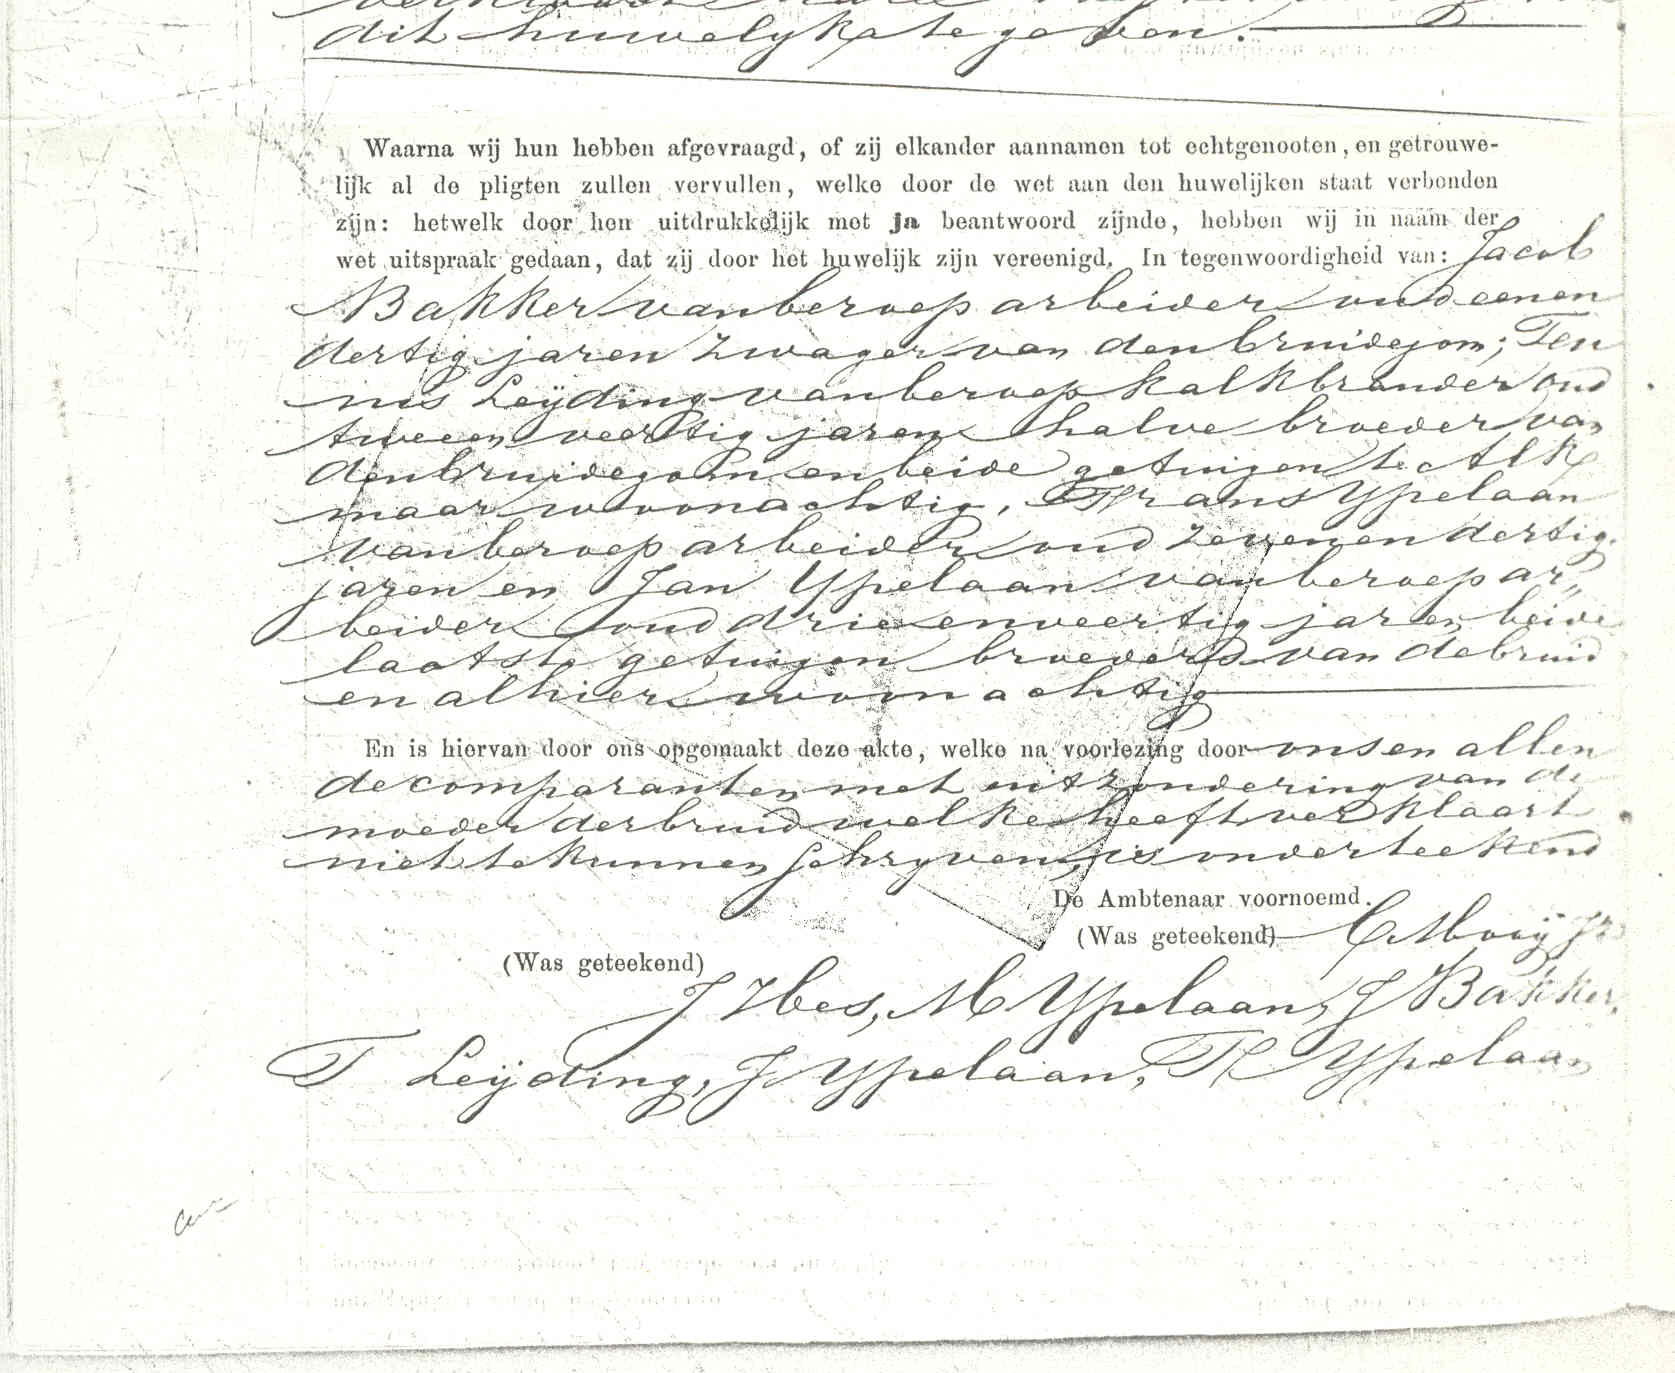 dit huwelyk te geven.
Waarna wij hun hebben afgevraagd, of zij elkander aannamen tot echtgenooten, en getrouwe-
lijk al de pligten zullen vervullen, welke door de wet aan den huwelijken staat verbonden
zijn: hetwelk door hen uitdrukkelijk met ja beantwoord zijnde, hebben wij in naam der
wet uitspraak gedaan, dat zij door het huwelijk zijn vereenigd. In tegenwoordigheid van: Jacob
Bakker van beroep arbeider oud eenen
dertig jaren zwager van den bruidegom; Teu
nis Leijding van beroep kalkbrander oud
tweeen veertig jaren halve broeder van
den bruidegom en beide getuigen te Alk
maar woonachtig, Frans Ypelaan
van beroep arbeider oud zevenendertig
jaren en Jan Ypelaan van beroep ar„
beider oud drieenveertig jaren beide
laatste getuigen broeders van de bruid
en alhier woonachtig
En is hiervan door ons opgemaakt deze akte, welke na voorlezing door ons en allen
de comparanten met uitzondering van de
moeder der bruid welke heeft verklaart
niet te kunnen schryven, is onderteekend
De Ambtenaar voornoemd.
(Was geteekend) C Mooij Jz
(Was geteekend)
J Hes, M Ypelaan, J Bakker,
T Leijding, J Ypelaan, F Ypelaan